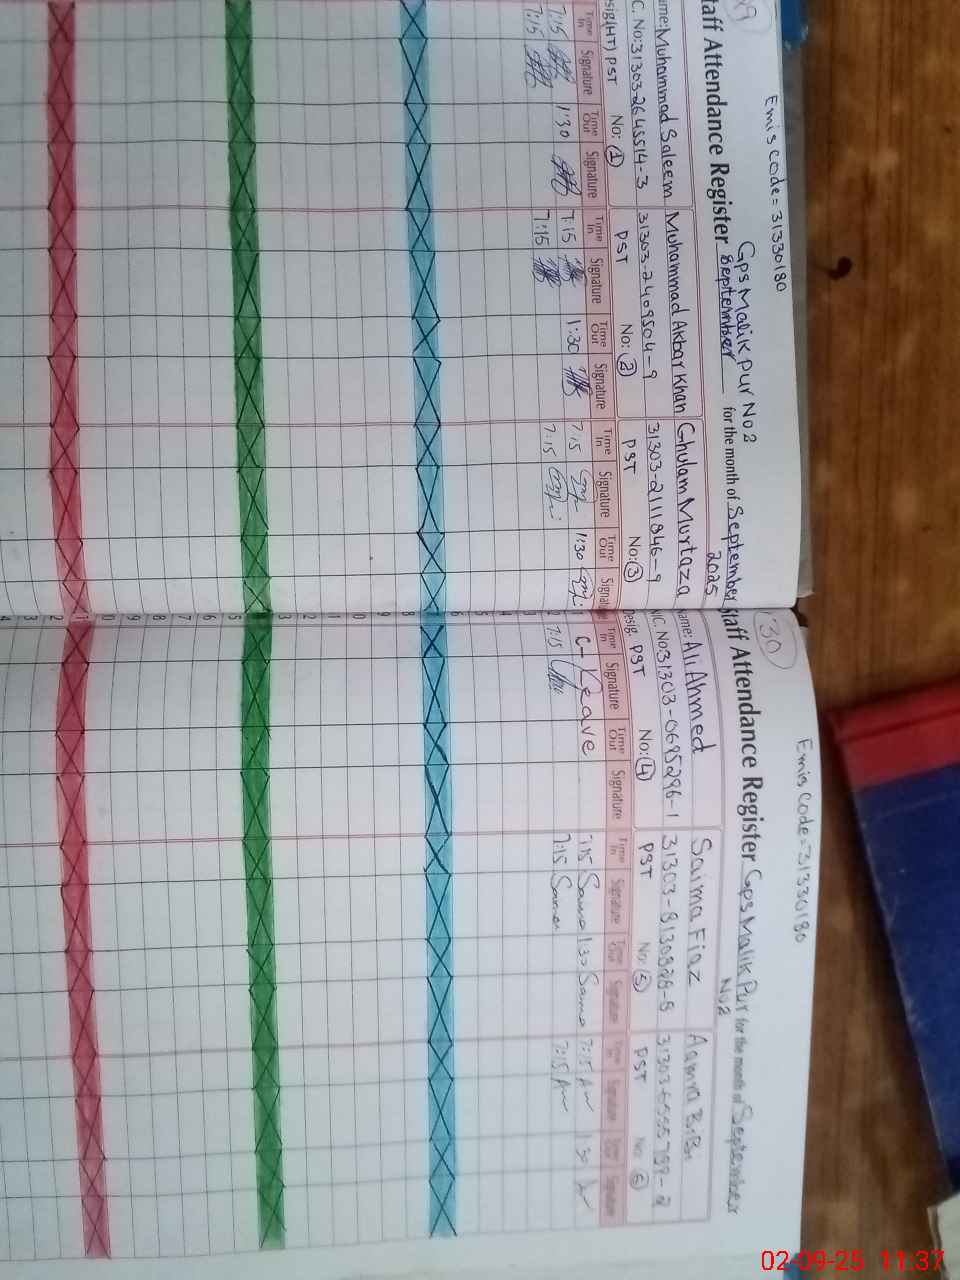 29
Emis Code = 31330180
Gps Malik Pur No 2
Staff Attendance Register September for the month of September 2025
Name: Muhammad Saleem Muhammad Akbar Khan Ghulam Murtaza
C. No: 31303-2645514-3 31303-2409504-9 31303-2111846-9
Desig (HT) PST No: 1 PST No: 2 PST No: 3
Time In Signature Time Out Signature Time In Signature Time Out Signature Time In Signature Time Out Signature
7:15 1:30 7:15 1:30 7:15 1:30
7:15 7:15 7:15
130
Emis Code = 31330180
Staff Attendance Register Gps Malik Pur No 2 for the month of September
Name: Ali Ahmed Saima Fiaz Aamra BiBi
NIC. No 31303-0695296-1 31303-8130826-8
Desig. PST No: 4 PST No: 5 PST No: 6
Time In Signature Time Out Signature Time In Signature Time Out Signature Time In Signature Time Out Signature
C-Leave 7:15 Saima 1:30 Saima 7:15 1:30
2 7:15 7:15 Saima 7:15
3
4
5
6
7
8
9
10
11
12
13
14
15
16
17
18
19
20
21
22
23
24
02-09-25 11:37